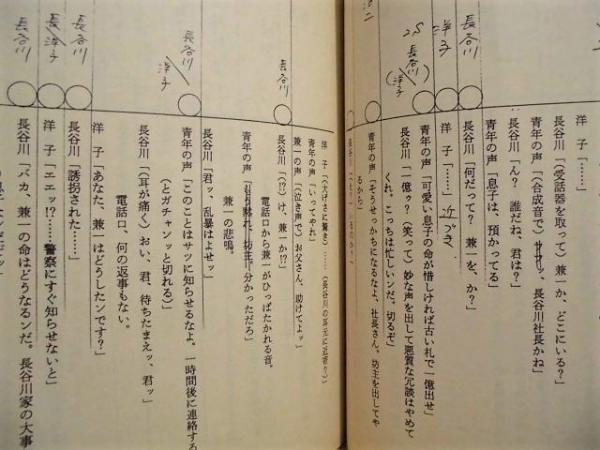 洋子「……」
長谷川「(受話器を取って)兼一か、どこにいる?」
青年の声「(合成音で)サササッ、長谷川社長かね」
長谷川「ん? 誰だね、君は?」
青年の声「息子は、預かってる」
長谷川「何だって? 兼一を、か?」
洋子「……」近づき、
青年の声「可愛い息子の命が惜しければ古い札で一億出せ」
長谷川「一億ゥ?(笑って)妙な声を出して悪質な冗談はやめて
くれ。こっちは忙しいンだ。切るぞ」
青年の声「そうせっかちになるなよ、社長さん。坊主を出してや
るから」
洋子「(大げさに驚き)……(長谷川の耳元に近寄り)」
青年の声「いってやれ」
兼一の声「(泣き声で)お父さん、助けてよッ」
長谷川「(!?)け、兼一か!?」
電話口から兼一がひっぱたかれる音。
兼一の悲鳴。
青年の声「黙れ、坊主!分かっただろ」
長谷川「君ッ、乱暴はよせッ」
青年の声「このことはサツに知らせるなよ。一時間後に連絡する
(とガチャンッと切れる)」
長谷川「(耳が痛く)おい、君、待ちたまえッ、君ッ」
電話口、何の返事もない。
洋子「あなた、兼一はどうしたンです?」
長谷川「誘拐された……」
洋子「エエッ!?……警察にすぐ知らせないと」
長谷川「バカ、兼一の命はどうなるンだ。長谷川家の大事
長谷川
洋子
2S 長谷川(洋子)
長谷川
長谷川/洋子
長谷川
長谷川/洋子
長谷川